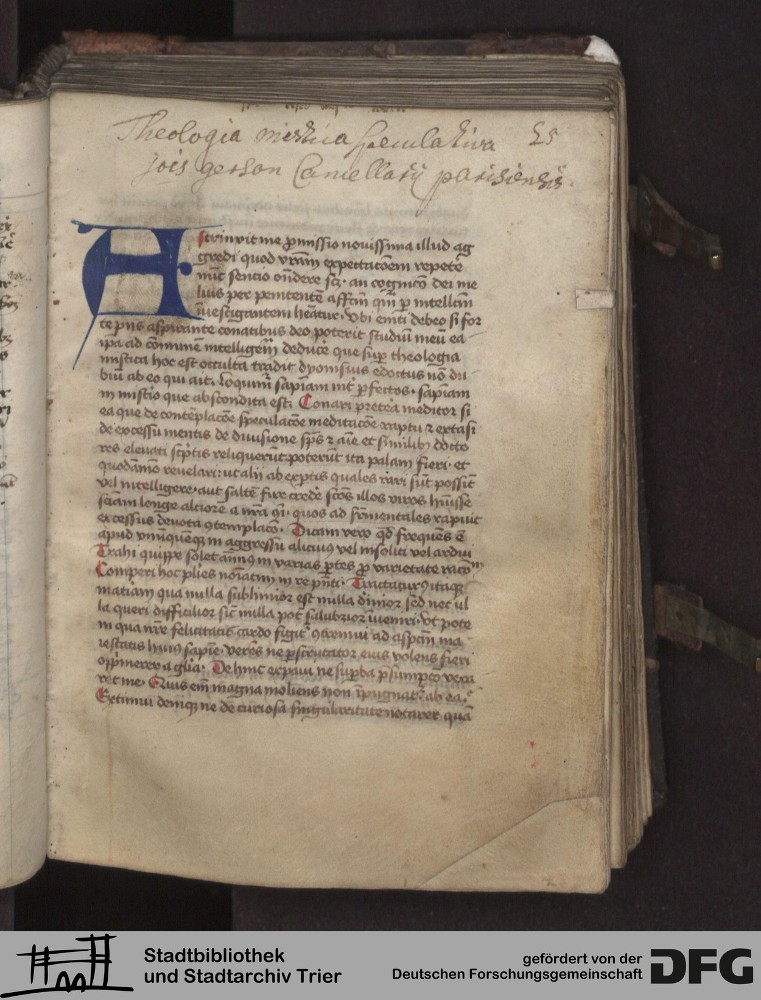 Theologia mistica speculatiua 25
jois gerson Cancellarij parisiensis.
Astrinxit me p̄missio nouissima illud ag
gredi quod vr̄am expectatōem repetē
nūc sencio on̄dere sꝫ. an cognicō dei me
lius per penitentē affm̄ qm̄ p intellm̄
inuestigantem heātur. Vbi em̄ debeo si for
te p̄us aspirante conatibus deo poterit studiū meū ea
ip̄a ad cōmunē intelligen̄ deducē que suꝑ theologia
mistica hoc est occulta tradit dyonisius edoctus nō du
biū ab eo qui ait. loquim̄ sapiam int̄ ꝑfectos. sapiam
in mistio que abscondita est. Conari p̄terea meditor si
ea que de contēplacōe speculacōe meditacōe raptu ⁊ extasi
de excessu mentis de diuisione sp̄s ⁊ aīe et similibꝫ docto
res eleuati scptis reliquerūt poterūt ita palam fieri. et
quodāmō reuelari: ut alij ab exptis quales rari sūt possīt
vel intelligere. aut saltē firᵉ credē scōs illos viros hūisse
sciam longe altiorē a nr̄a qͥ. quos ad fr̄mentales rapuit
excessus deuota ꝯtemplacō. Dicam vero qd̄ frequēs ē
apud vnūquēqꝫ in aggressu alicuius vel insoliti vel ardui
Trahi quippe solet aīmus in varias ꝑtes ꝓ varietate racōnū
Comperi hoc pl̄ies noīatim in re pn̄ti. Tractaturꝰ itaqꝫ
matiam qua nulla sublimior est nulla diīnior sed nec ul
la queri difficilior sic nulla pot̄ salubrior īuenri. vt pote
in qua nr̄e felicitatis cardo figit̄ ꝯtremui ad aspcm̄ ma
iestatis huius sapie. verēs ne ꝑscrutator eius volens fieri
opp̄merer a glīa. De hinc expaui ne supba p̄sumpcō vexa
ret me. Quis em̄ magna moliens non īpugnat̄ ab ea.
Extimui deniqꝫ ne de curiosa singularitate notarer quā
Stadtbibliothek
und Stadtarchiv Trier
gefördert von der
Deutschen Forschungsgemeinschaft
DFG